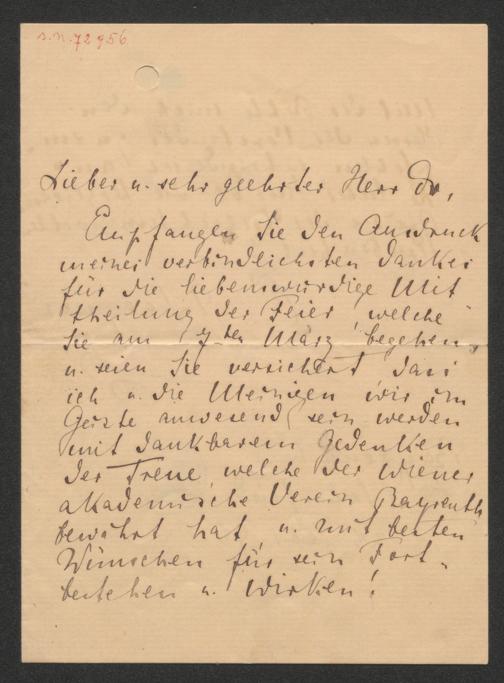 I.N. 72956
Lieber u. sehr geehrter Herr Dr,
Empfangen Sie den Ausdruck
meines verbindlichsten Dankes
für die liebenswürdige Mit
theilung der Feier, welche
Sie am 7ten März begehen,
u. seien Sie versichert dass
ich u. die Meinigen wir im
Geiste anwesend sein werden
mit dankbarem Gedenken
der Treue, welche der Wiener
akademische Verein Bayreuth
bewahrt hat u. mit besten
Wünschen für sein Fort-
bestehen u. Wirken!